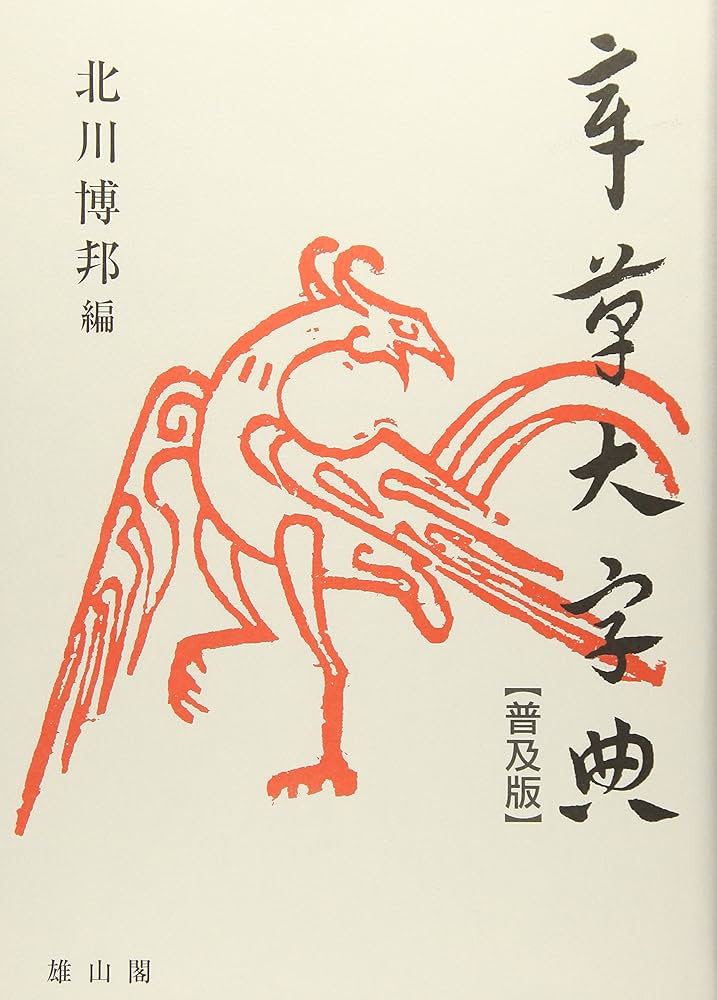 章草大字典
【普及版】
北川博邦編
雄山閣